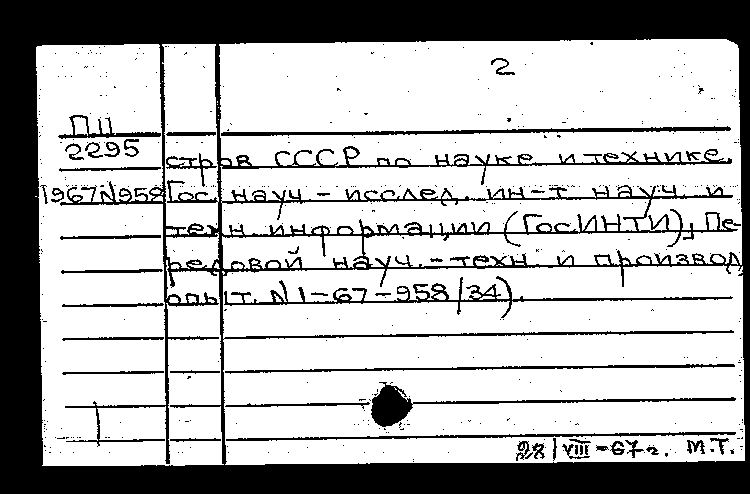 2
П II
2295 стров СССР по науке и технике.
1967 N 958 Гос. науч-исслед. ин-т науч. и
техн. информации (ГосИНТИ), Пе-
редовой науч.-техн и производ.
опыт. N 1-67-958/34).
28/VIII-67г. М.Т.